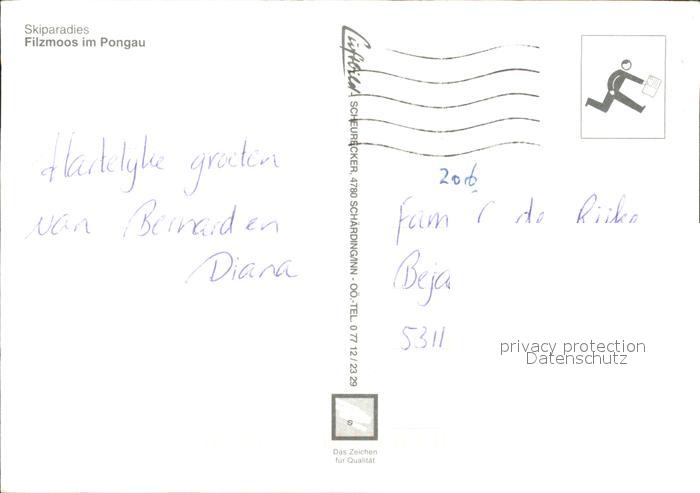 Skiparadies
Filzmoos im Pongau
Hartelijke groeten
van Bernard en
Diana
Luftbild SCHEURECKER, 4780 SCHÄRDING/INN - OÖ.-TEL. 0 77 12 / 23 29
206
Fam
Beja
5311
privacy protection
Datenschutz
S
Das Zeichen
für Qualität